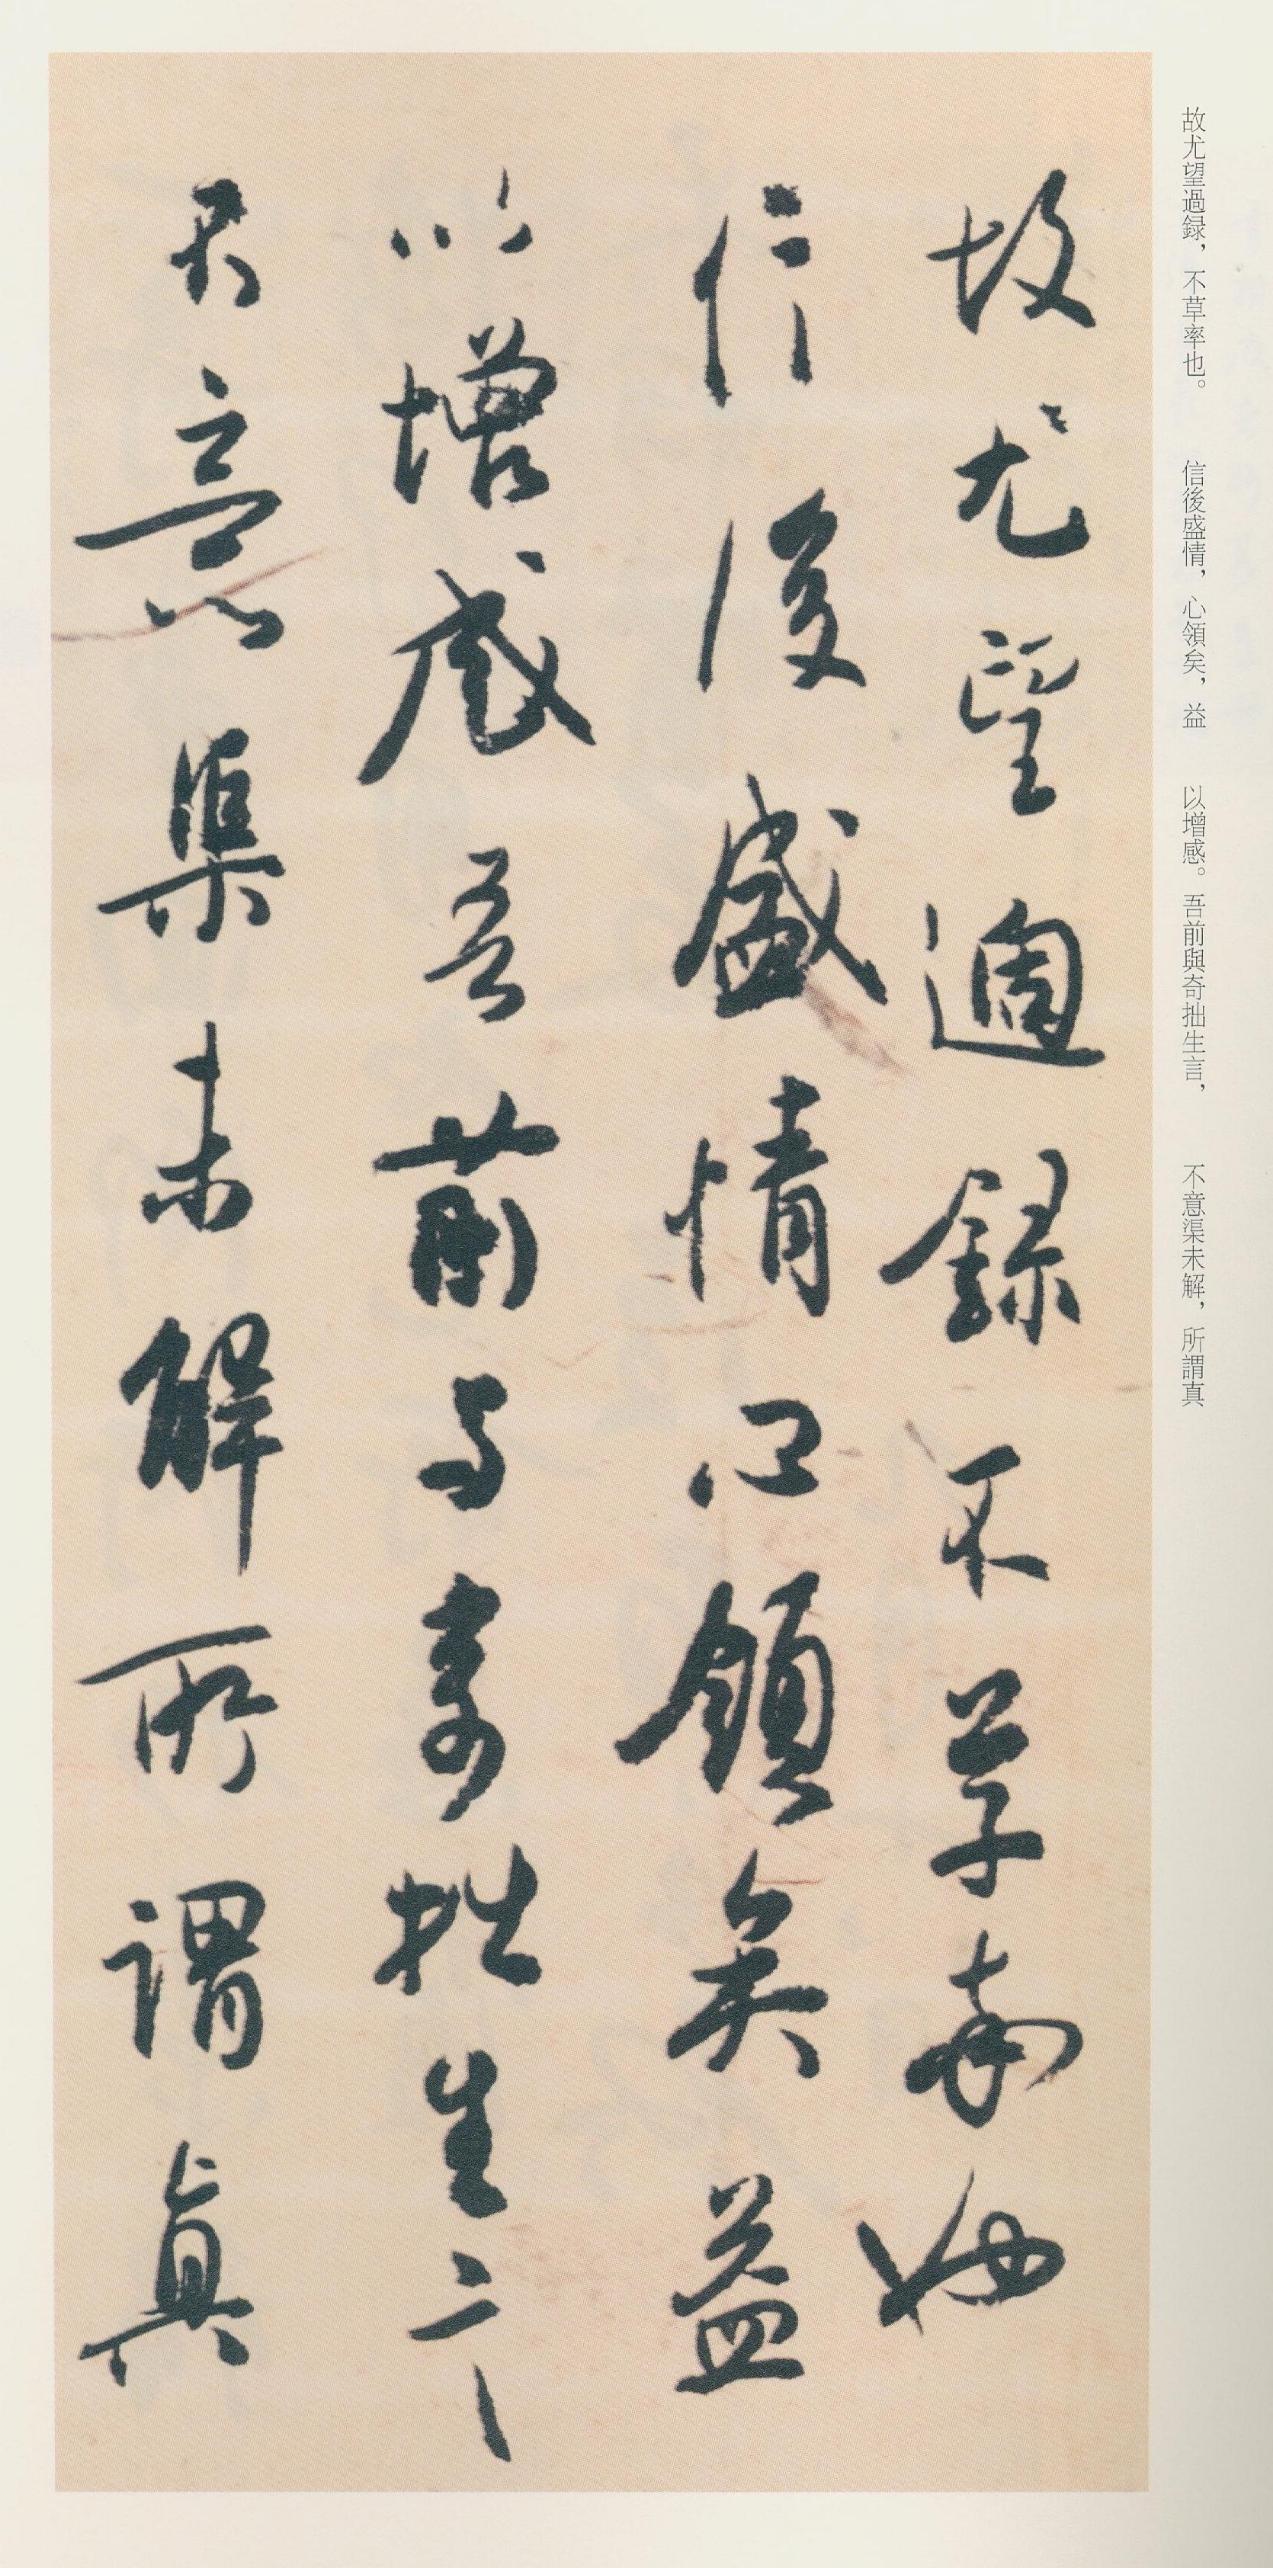 故尤望過録，不草率也。　信後盛情，心領矣，益　以增感。吾前與奇拙生言，　不意渠未解，所謂真
故尤望過録不草率也
信後盛情心領矣益
以增感吾前与奇拙生言
不意渠未解所謂真